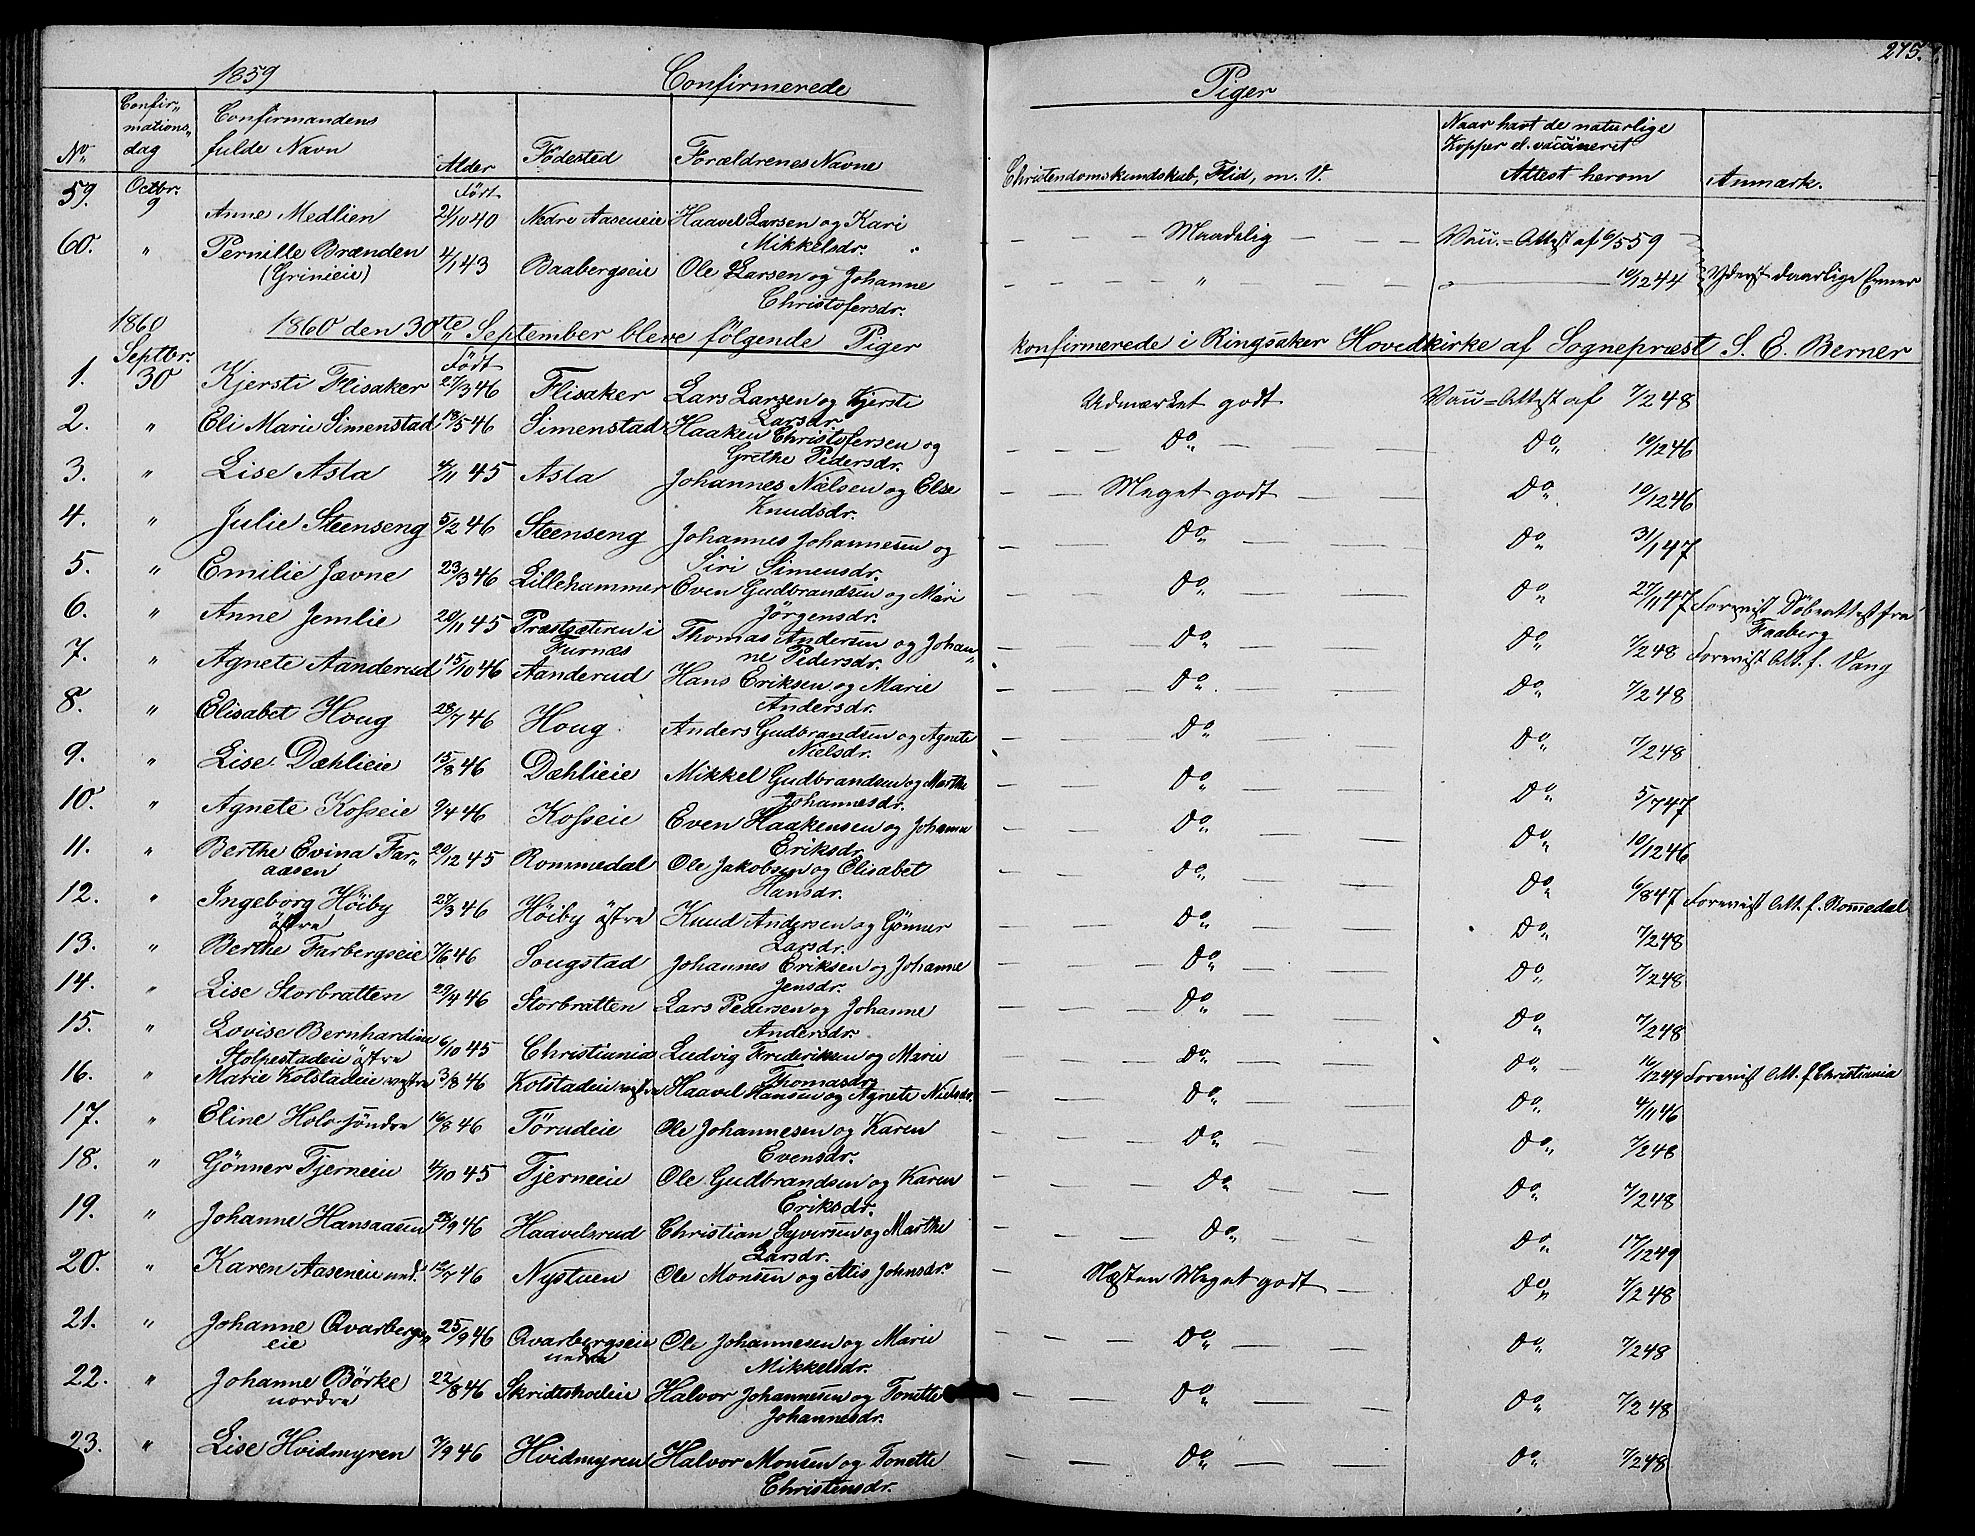 275.
1859 Confirmerede Piger
No. Confir- mations- dag Confirmandens fulde Navn Alder Fødested Forældrenes Navne Christendomskundskab, Flid, m. V. Naar havt de naturlige Kopper el. vaccineret Attest herom Anmærk.
59. Octbr. 9 Anne Medlien Født 21/10 40 Nedre Aaseneie Haavel Larsen og Kari Mikkelsdr. Maadelig Vac.=Attest af 6/5 59
60. " Pernille Brænden (Grinieie) 4/1 43 Baabergseie Ole Larsen og Johanne Christofersdr. " " 10/12 44 Yderst daarlige Evner
1860 1860 den 30te September bleve følgende Piger konfirmerede i Ringsaker Hovedkirke af Sognepræst S. E. Berner
1. Septbr. 30 Kjersti Flisaker Født 27/3 46 Flisaker Lars Larsen og Kjersti Larsdr. Udmærket godt Vac=Attest af 7/2 48
2. " Eli Marie Simenstad 18/5 46 Simenstad Haaken Christofersen og Grethe Pedersdr. Do. Do. 10/12 46
3. " Lise Asla 4/11 45 Asla Johannes Nielsen og Else Knudsdr. Meget godt Do. 10/12 46
4. " Julie Steenseng 5/2 46 Steenseng Johannes Johannesen og Siri Simensdr. Do. Do. 31/1 47
5. " Emilie Jævne 23/3 46 Lillehammer Even Gudbrandsen og Mari Jörgensdr. Do. Do. 27/11 47 Forevist Döbeattest fra Faaberg
6. " Anne Jemlie 20/11 45 Præstsæteren i Furnæs Thomas Andersen og Johan- ne Pedersdr. Do. Do. 7/2 48 Forevist Att. f. Vang
7. " Agnete Aanderud 15/10 46 Aanderud Hans Eriksen og Marie Andersdr. Do. Do. 7/2 48
8. " Elisabet Houg 28/7 46 Houg Anders Gudbrandsen og Agnete Nielsdr. Do. Do. 7/2 48
9. " Lise Dæhlieie 15/8 46 Dæhlieie Mikkel Gudbrandsen og Marthe Johannesdr. Do. Do. 5/7 47
10. " Agnete Kosseie 9/4 46 Kosseie Even Haakensen og Johanne Eriksdr. Do. Do. 10/12 46
11. " Berthe Evina Far- aasen 20/12 45 Rommedal Ole Jakobsen og Elisabet Hansdr. Do. Do. 6/8 47 Forevist Att. f. Romedal
12. " Ingeborg Höiby östre 27/3 46 Höiby östre Knud Andersen og Gönner Larsdr. Do. Do. 7/2 48
13. " Berthe Farbergseie 7/6 46 Sougstad Johannes Eriksen og Johanne Jensdr. Do. Do. 7/2 48
14. " Lise Storbratten 29/4 46 Storbratten Lars Pedersen og Johanne Andersdr. Do. Do. 7/2 48
15. " Lovise Bernhardine Stolpestadeie östre 6/10 45 Christiania Ludvig Frederiksen og Marie Thomasdr. Do. Do. 16/12 49 Forevist Att. f Christiania
16. " Marie Kolstadeie vestre 3/8 46 Kolstadeie vestre Haavel Hansen og Agnete Nielsdr. Do. Do. 4/11 46
17. " Eline Holo söndre 16/8 46 Törudeie Ole Johannesen og Karen Evensdr. Do. Do. 7/2 48
18. " Gönner Tjerneeie 4/10 45 Tjerneeie Ole Gudbrandsen og Karen Eriksdr. Do. Do. 7/2 48
19. " Johanne Hansaasen 18/9 46 Haavelsrud Christian Syversen og Marthe Larsdr. Do. Do. 17/12 49
20. " Karen Aaseneie ned. 12/7 46 Nystuen Ole Monsen og Alis Johnsdr. Næsten Meget godt Do. 7/2 48
21. " Johanne Qvarbergs- eie 25/9 46 Qvarbergseie nedre Ole Johannesen og Marie Mikkelsdr. Do. Do. 7/2 48
22. " Johanne Börke nordre 22/8 46 Skridtsholeie Halvor Johannesen og Tonette Johannesdr. Do. Do. 7/2 48
23. " Lise Hvidmyren 7/9 46 Hvidmyren Halvor Monsen og Tonette Christensdr. Do. Do. 7/2 48